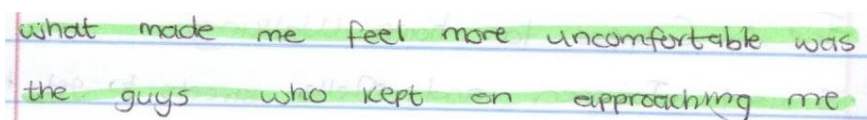 what made me feel more uncomfortable was
the guys who kept on approaching me